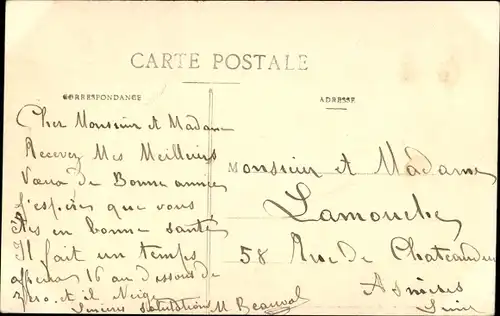 CARTE POSTALE
CORRESPONDANCE
ADRESSE
Cher Monsieur et Madame
Recevez Mes Meilleurs
Vœux de Bonne année
J'espères que vous
êtes en bonne santé
Il fait un temps
affreux 16 au dessous de
zéro. et il Neige
Sincères salutations M. Beauval
Monsieur et Madame
Lamouche
58 Rue de Chateaudun
Asnières
Seine